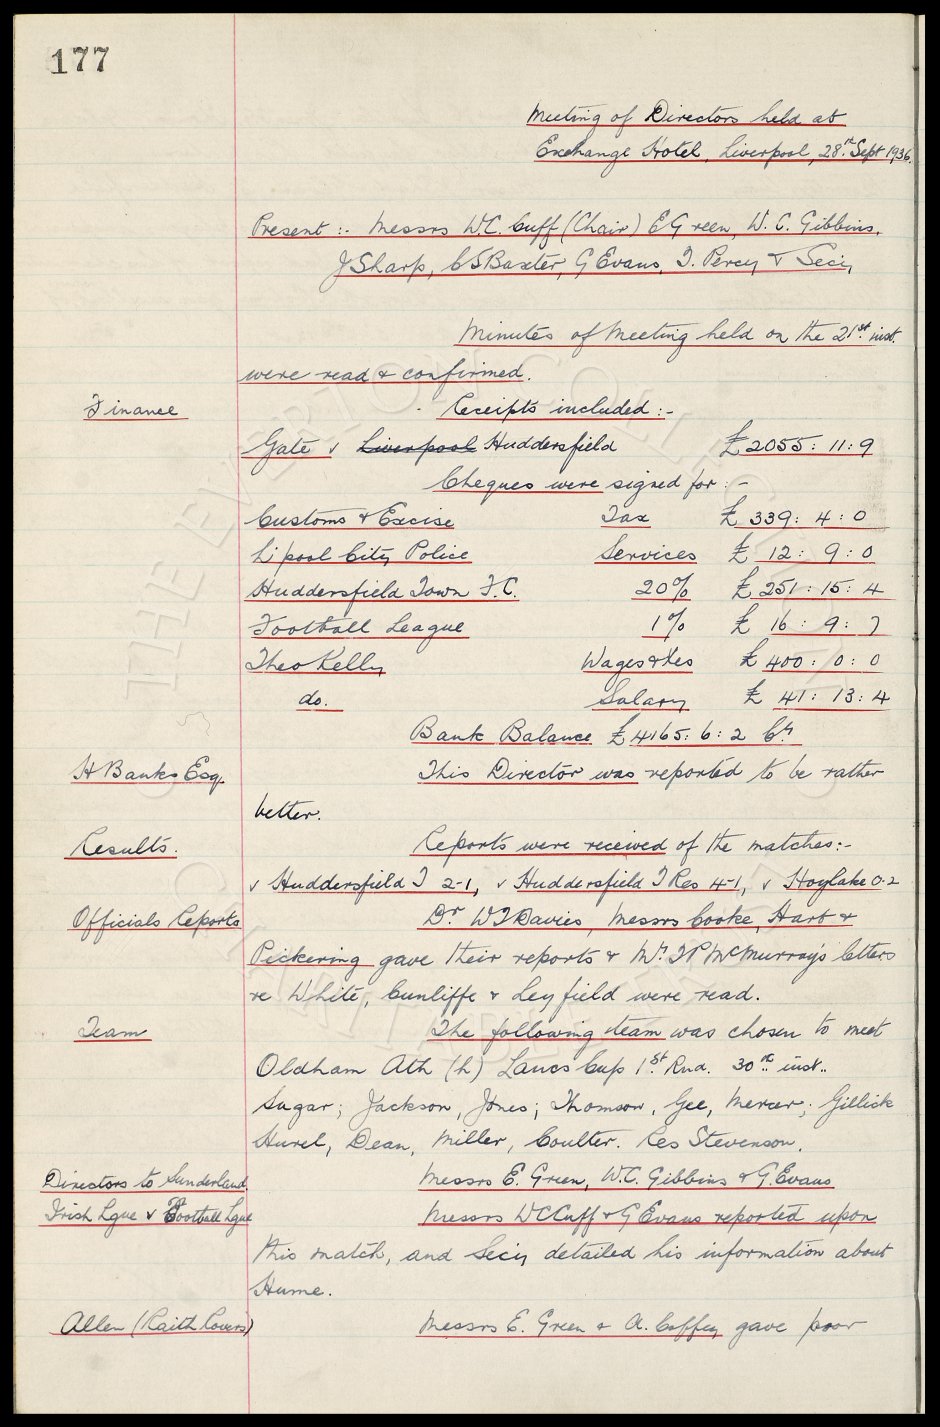 177
Meeting of Directors held at
Exchange Hotel, Liverpool, 28th Sept 1936.
Present :- Messrs W.C. Cuff (Chair) E Green, W. C. Gibbins,
J Sharp, C S Baxter, G Evans, T. Percy & Secy
Minutes of Meeting held on the 21st inst.
were read & confirmed.
Finance Receipts included :-
Gate v Liverpool Huddersfield £2055: 11: 9
Cheques were signed for :-
Customs & Excise Tax £ 339: 4: 0
L'pool City Police Services £ 12: 9: 0
Huddersfield Town F.C. 20% £ 251: 15: 4
Football League 1% £ 16: 9: 7
Theo Kelly Wages & Xes £ 400: 0: 0
do. Salary £ 41: 13: 4
Bank Balance £4165: 6: 2 Cr.
H Banks Esq. This Director was reported to be rather
better.
Results. Reports were received of the matches:-
v Huddersfield T 2-1, v Huddersfield T Res 4-1, v Hoylake 0-2
Officials Reports Dr W T Davies, Messrs Cooke, Hart &
Pickering gave their reports & Mr. T P McMurray's letters
re White, Cunliffe & Leyfield were read.
Team The following team was chosen to meet
Oldham Ath (h) Lancs Cup 1st. Rnd. 30th. inst..
Sagar; Jackson, Jones; Thomson, Gee, Mercer; Gillick
Hurel, Dean, Miller, Coulter. Res Stevenson.
Directors to Sunderland. Messrs E. Green, W.C. Gibbins & G. Evans
Irish Lgue v Football Lgue Messrs W C Cuff & G Evans reported upon
this match, and Secy detailed his information about
Hume.
Allen (Raith Rovers) Messrs E. Green & A. Coffey gave poor
THE EVERTON COLLECTION
CHARITABLE TRUST